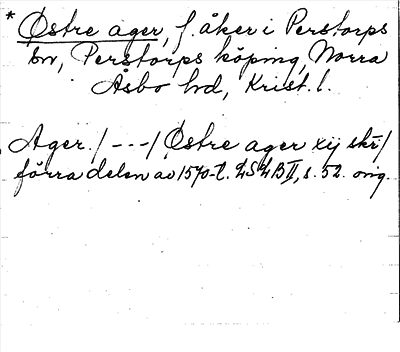 * Østre ager, f. åker i Perstorps
bv, Perstorps köping, Norra
Åsbo hd, Krist. l.
Ager. / - - - / Østre ager xij skr̄ /
förra delen av 1570-t. LSLB II, s. 52. orig.